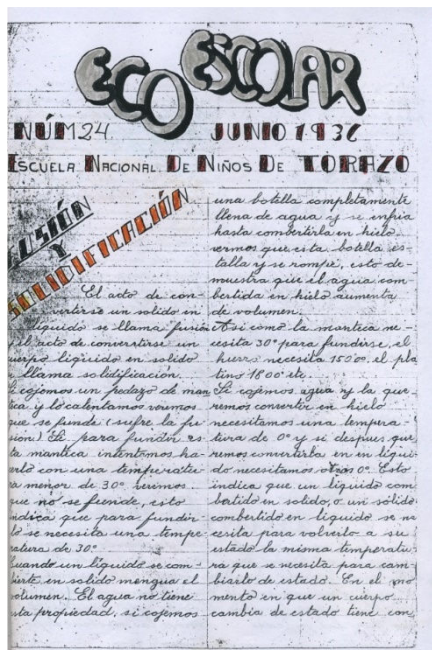 ECO ESCOLAR
NÚM 24 JUNIO 1936
ESCUELA NACIONAL DE NIÑOS DE TORAZO
FUSIÓN
Y
SOLIDIFICACIÓN
El acto de con-
vertirse un solido en
liquido se llama fusión
y el acto de convertirse un
cuerpo liquido en solido
se llama solidificación.
Si cojemos un pedazo de man
tica y lo calentamos vermos
que se funde (sufre la fu
sión) Si para fundir es
ta mantica intentamos ha-
cerlo con una temperatu-
ra menor de 30° veremos
que no se fuende, esto
indica que para fundir
lo se necesita una tempe
ratura de 30°
Cuando un liquido se com-
bierte en solido mengua el
volumen. El agua no tiene
esta propiedad, si cojemos
una botella completamente
llena de agua y se enfria
hasta combertirla en hielo
vermos que esta botella es-
talla y se rompe, esto de-
muestra que el agua com
bertida en hielo aumenta
de volumen.
Asi como la manteca ne-
cesita 30° para fundirse, el
hierro necesita 1500°, el pla
tino 1800 etc.
Si cojemos agua y la que-
remos convertir en hielo
necesitamos una tempera-
tura de 0° y si despues que
remos convertirla en en liqui-
do necesitamos otros 0°. Esto
indica que un liquido com
bertido en solido, o un sólido
combertido en liquido se ne
cesita para volverlo a su
estado la misma temperatu-
ra que se necesita para cam
biarlo de estado. En el mo
mento en que un cuerpo
cambia de estado tiene con